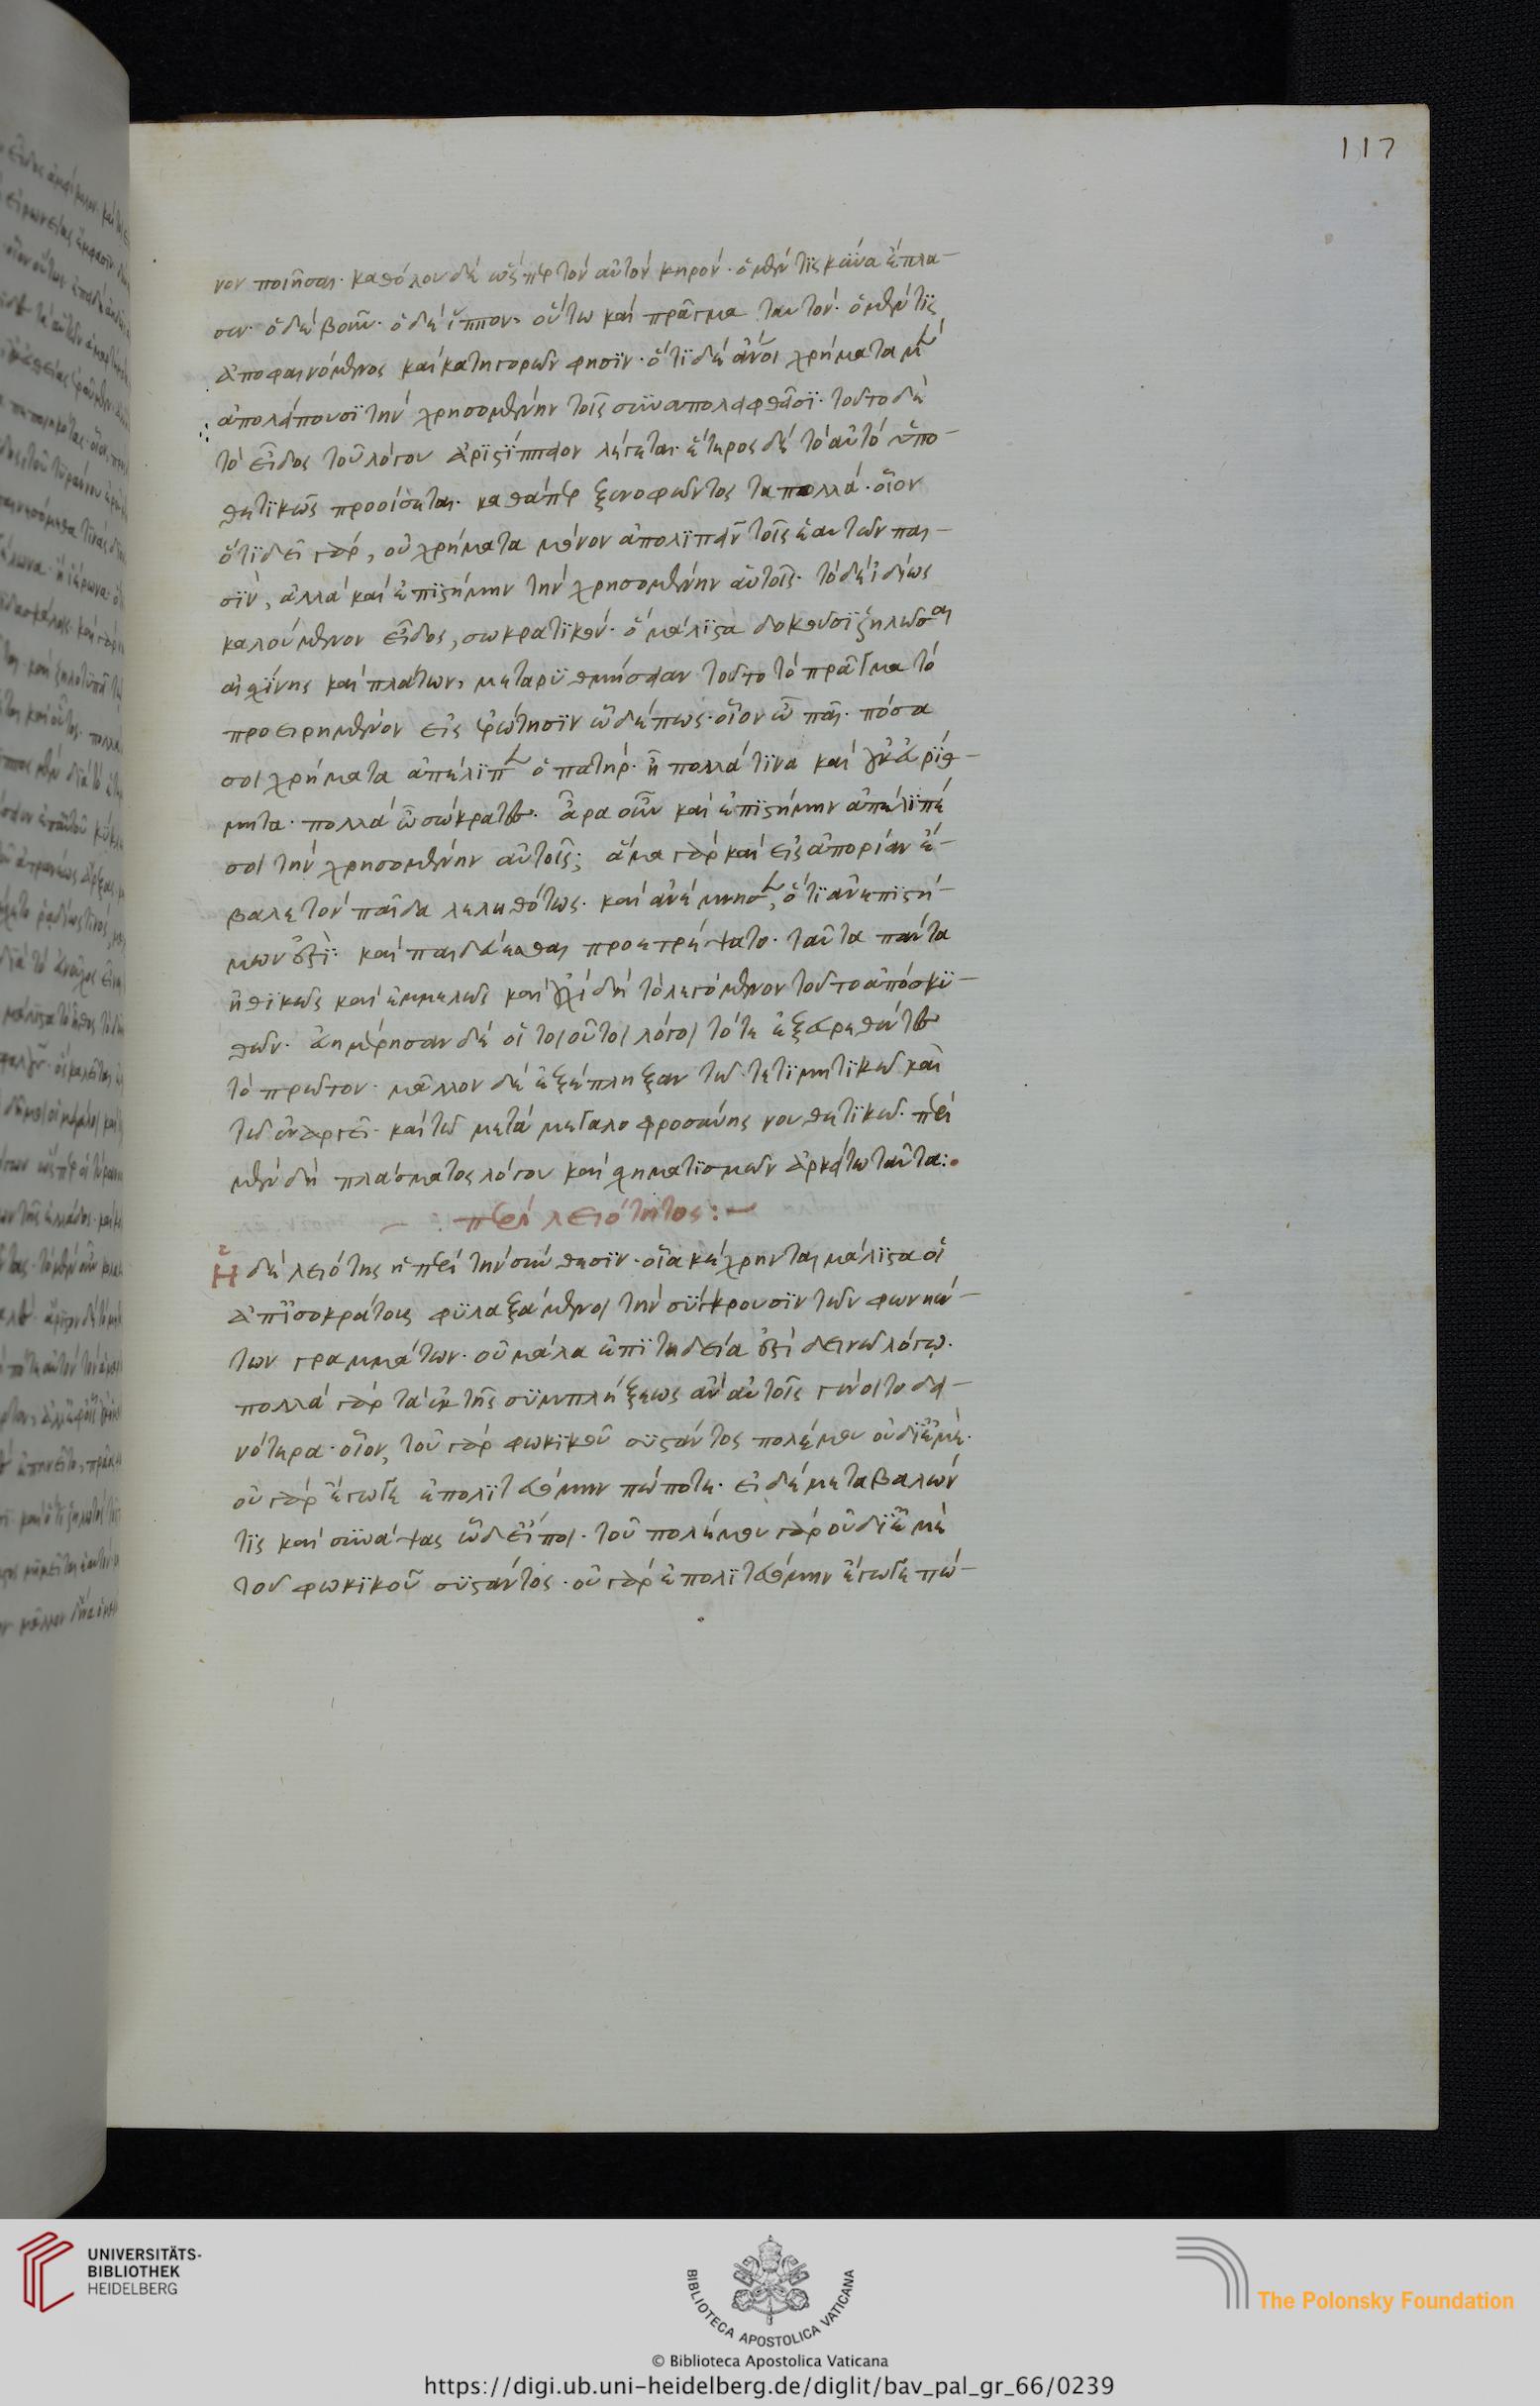 117
νον ποιῆσαι· καθόλου δὲ ὥσπερ τὸν αὐτὸν κηρόν· ὁ μέν τις κύνα ἔπλα-
σεν· ὁ δὲ βοῦν· ὁ δὲ ἵππον· οὕτω καὶ πρᾶγμα ταυτόν· ὁ μέν τϊς
ἀποφαινόμενος καὶ κατηγορῶν φησϊν· ὅτϊ δὲ ἄνοι χρήματα μὲν
ἀπολείπουσϊ τὴν χρησομένην τοῖς συναπολειφθεῖσϊ· τοῦτο δὲ
τὸ εἶδος τοῦ λόγου ἀρϊστίππειον λέγεται· ἕτερος δὲ τὸ αὐτὸ ὑπο-
θετϊκῶς προοίσεται· καθάπερ ξενοφῶντος τὰ πολλά· οἷον
ὅτϊ δεῖ γὰρ, οὐ χρήματα μόνον ἀπολϊπεῖν τοῖς ἑαυτῶν παι-
σϊν, ἀλλὰ καὶ ἐπϊστήμην τὴν χρησομένην αὐτοῖς· τὸ δὲ ἰδίως
καλούμενον εἶδος, σωκρατϊκόν· ὃ μάλϊστα δοκοῦσϊ ζηλῶσαι
αἰσχίνης καὶ πλάτων, μεταρυθμήσειαν τοῦτο τὸ πρᾶγμα τὸ
προειρημένον εἰς ἐρώτησϊν ὧδέ πως· οἷον ὦ παῖ· πόσα
σοι χρήματα ἀπέλϊπεν ὁ πατήρ· ἢ πολλά τϊνα καὶ οὐκ εὐαρίθ-
μητα· πολλὰ ὦ σώκρατες· ἆρα οὖν καὶ ἐπϊστήμην ἀπέλϊπέ
σοι τὴν χρησομένην αὐτοῖς; ἅμα γὰρ καὶ εἰς ἀπορίαν ἔ-
βαλε τὸν παῖδα λεληθότως· καὶ ἀνέμνησεν, ὅτϊ ἀνεπϊστή-
μων ἐστὶ· καὶ παιδεύεσθαι προετρέψατο· ταῦτα πάντα
ἠθϊκῶς καὶ ἐμμελῶς καὶ οὐχὶ δὴ τὸ λεγόμενον τοῦτο ἀπὸ σκυ-
θῶν· εὐημέρησαν δὲ οἱ τοιοῦτοι λόγοι τότε ἐξευρεθέντες
τὸ πρῶτον· μᾶλλον δὲ ἐξέπληξαν τῷ τε τϊμητϊκῷ καὶ
τῷ ἐναργεῖ· καὶ τῷ μετὰ μεγαλοφροσύνης νουθετϊκῷ· περὶ
μὲν δὴ πλάσματος λόγου καὶ σχηματϊσμῶν ἀρκείτω ταῦτα:·
περὶ λειότητος:~
Ἡ δὲ λειότης ἡ περὶ τὴν σύνθεσϊν· οἵα κέχρηνται μάλϊστα οἱ
ἀπ ἰσοκράτους φυλαξάμενοι τὴν σύγκρουσϊν τῶν φωνηέν-
των γραμμάτων· οὐ μάλα ἐπϊτηδεία ἐστὶ δεινῷ λόγῳ·
πολλὰ γὰρ τὰ ἐκ τῆς συμπλήξεως ἂν αὐτοῖς γένοιτο δει-
νότερα· οἷον, τοῦ γὰρ φωκϊκοῦ συστάντος πολέμου οὐ δϊ ἐμὲ·
οὐ γὰρ ἔγωγε ἐπολϊτευόμην πώποτε· εἰ δὲ μεταβαλών
τϊς καὶ συνάψας ὧδ εἴποι· τοῦ πολέμου γὰρ οὐ δϊ ἐμὲ
τοῦ φωκϊκοῦ συστάντος· οὐ γὰρ ἐπολϊτευόμην ἔγωγε πώ-
UNIVERSITÄTS-
BIBLIOTHEK
HEIDELBERG
BIBLIOTECA APOSTOLICA VATICANA
The Polonsky Foundation
© Biblioteca Apostolica Vaticana
https://digi.ub.uni-heidelberg.de/diglit/bav_pal_gr_66/0239